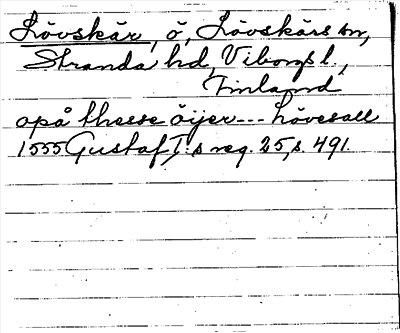 Lövskär, ö, Lövskärs sn,
Stranda hd, Viborgs l.,
Finland
opå thesse öijer --- Lövesall
1555 Gustaf I:s reg. 25, s. 491.